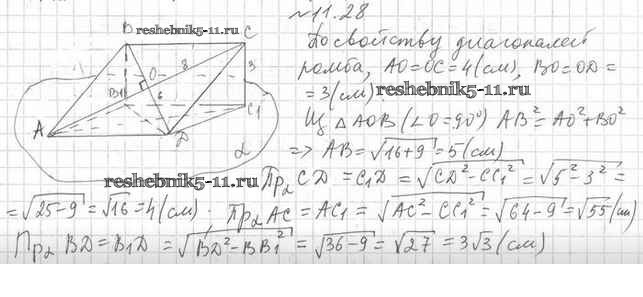 №11.28
B reshebnik5-11.ru C
O 8 3
B1 6 C1
A D α
По свойству диагоналей
ромба, AO=OC=4(см), BO=OD=
=3(см) reshebnik5-11.ru
Из △AOB (∠O=90°) AB²=AO²+BO²
=> AB=√16+9=5(см)
reshebnik5-11.ru Прα CD = C1D = √CD²-CC1² = √5²-3² =
=√25-9=√16=4(см); Прα AC = AC1 = √AC²-CC1² = √64-9=√55(см)
Прα BD=B1D = √BD²-BB1² = √36-9 = √27 = 3√3(см)